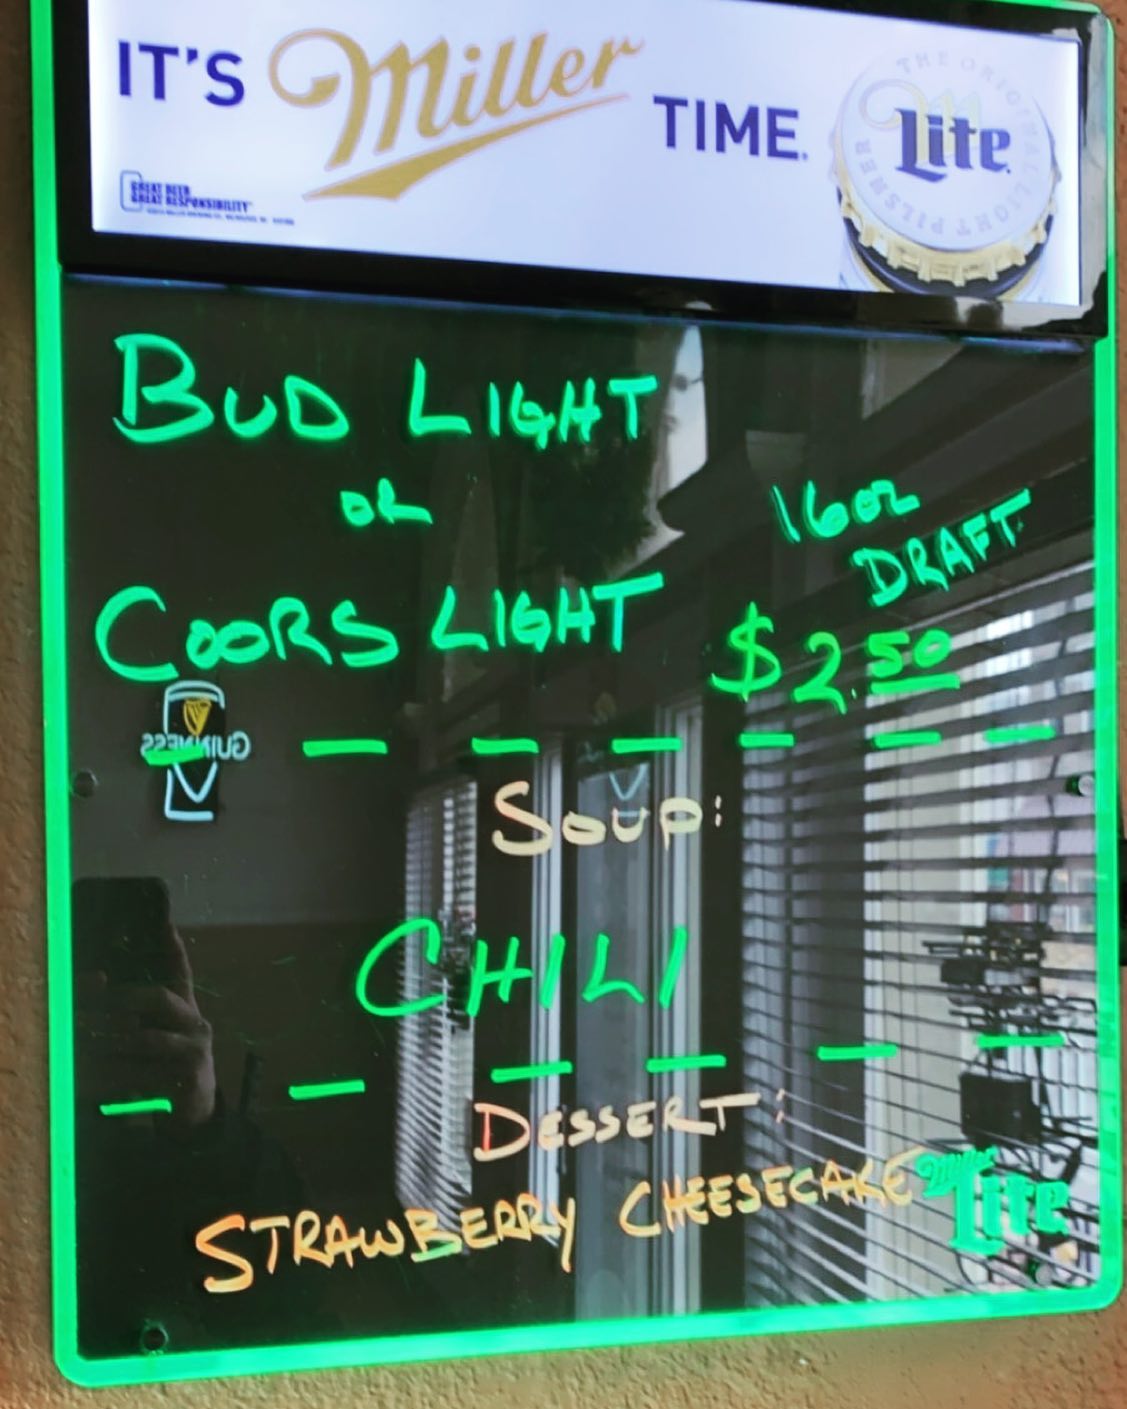 IT'S Miller TIME.
THE ORIGINAL LIGHT PILSNER
Lite
GREAT BEER
GREAT RESPONSIBILITY
BUD LIGHT
OR
COORS LIGHT
16oz
DRAFT
$2.50
GUINNESS
SOUP:
CHILI
DESSERT:
STRAWBERRY CHEESECAKE
Miller
Lite